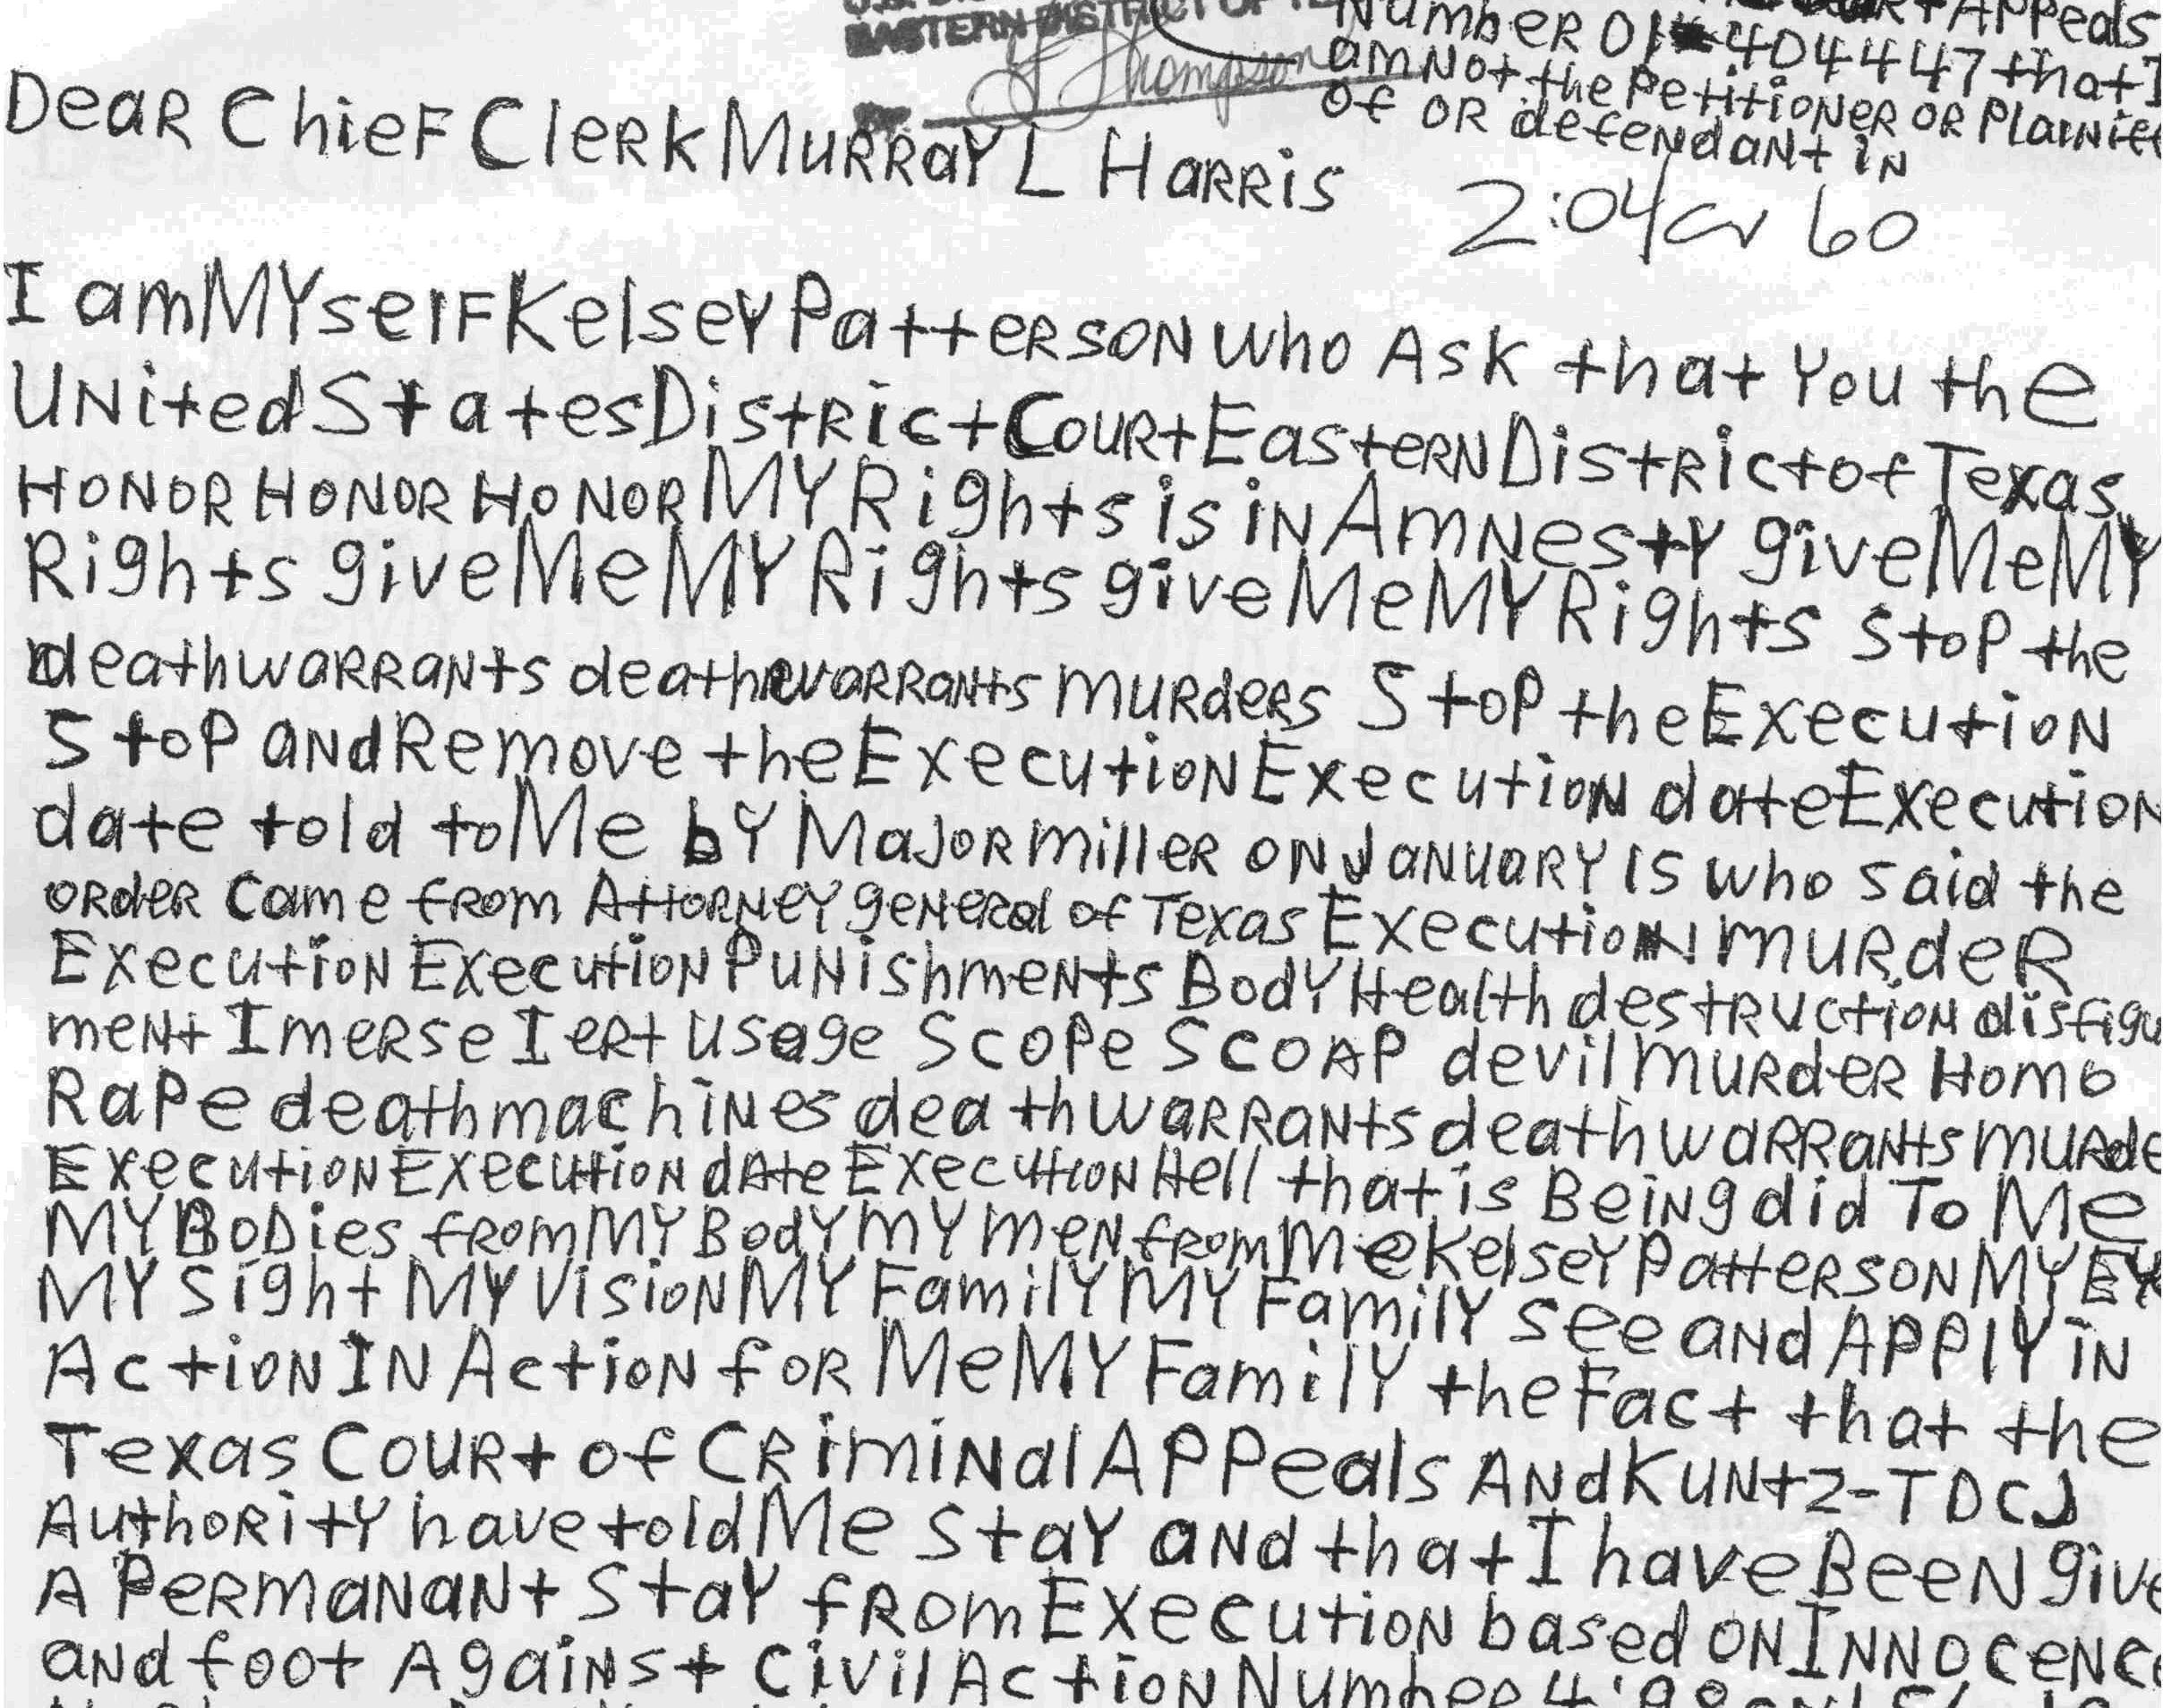 EASTERN DISTRICT OF
Thompson
Appeals
Number 01 404447 that I
am Not the Petitioner or Plaintiff
of or defendant in
2:04cv60
Dear Chief Clerk Murray L Harris
I am Myself Kelsey Patterson who Ask that You the
United States District Court Eastern District of Texas
Honor Honor Honor My Rights is in Amnesty give Me My
Rights give Me My Rights give Me My Rights Stop the
deathwarrants deathwarrants murders Stop the Execution
Stop and Remove the Execution Execution date Execution
date told to Me by Major Miller on January 15 who said the
order Came from Attorney general of Texas Execution murder
Execution Execution Punishments Body Health destruction disfigu
ment Imerse Iert usage Scope Scoap devil murder Homo
Rape death machines deathwarrants deathwarrants murde
Execution Execution date Execution Hell that is Being did To Me
My Bodies from My Body my men from me Kelsey Patterson My Ey
My Sight My Vision My Family My Family See and Apply in
Action In Action for Me My Family the Fact that the
Texas Court of Criminal Appeals And Kuntz-TDCJ
Authority have told Me Stay and that I have Been give
A Permanant Stay from Execution based on Innocence
and foot Against Civil Action Number